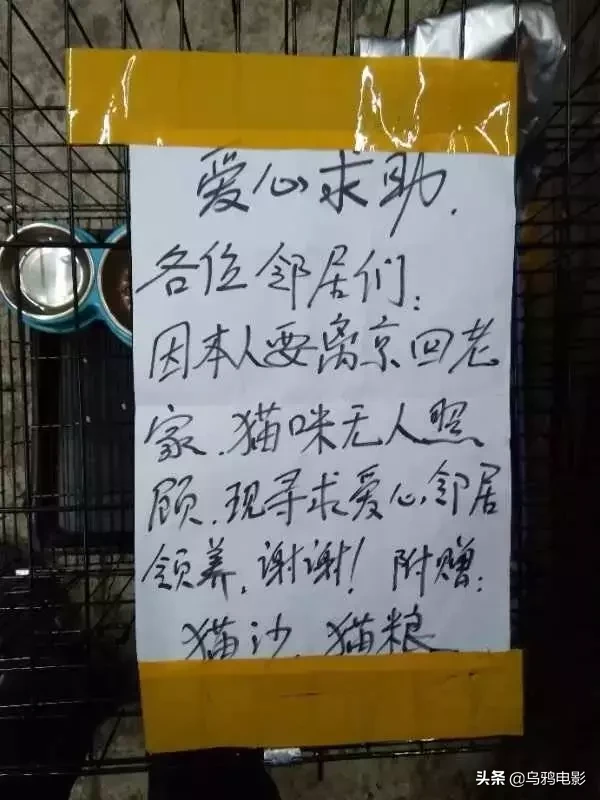 爱心求助.
各位邻居们:
因本人要离京回老
家.猫咪无人照
顾.现寻求爱心邻居
领养.谢谢! 附赠:
猫沙.猫粮
头条 @乌鸦电影